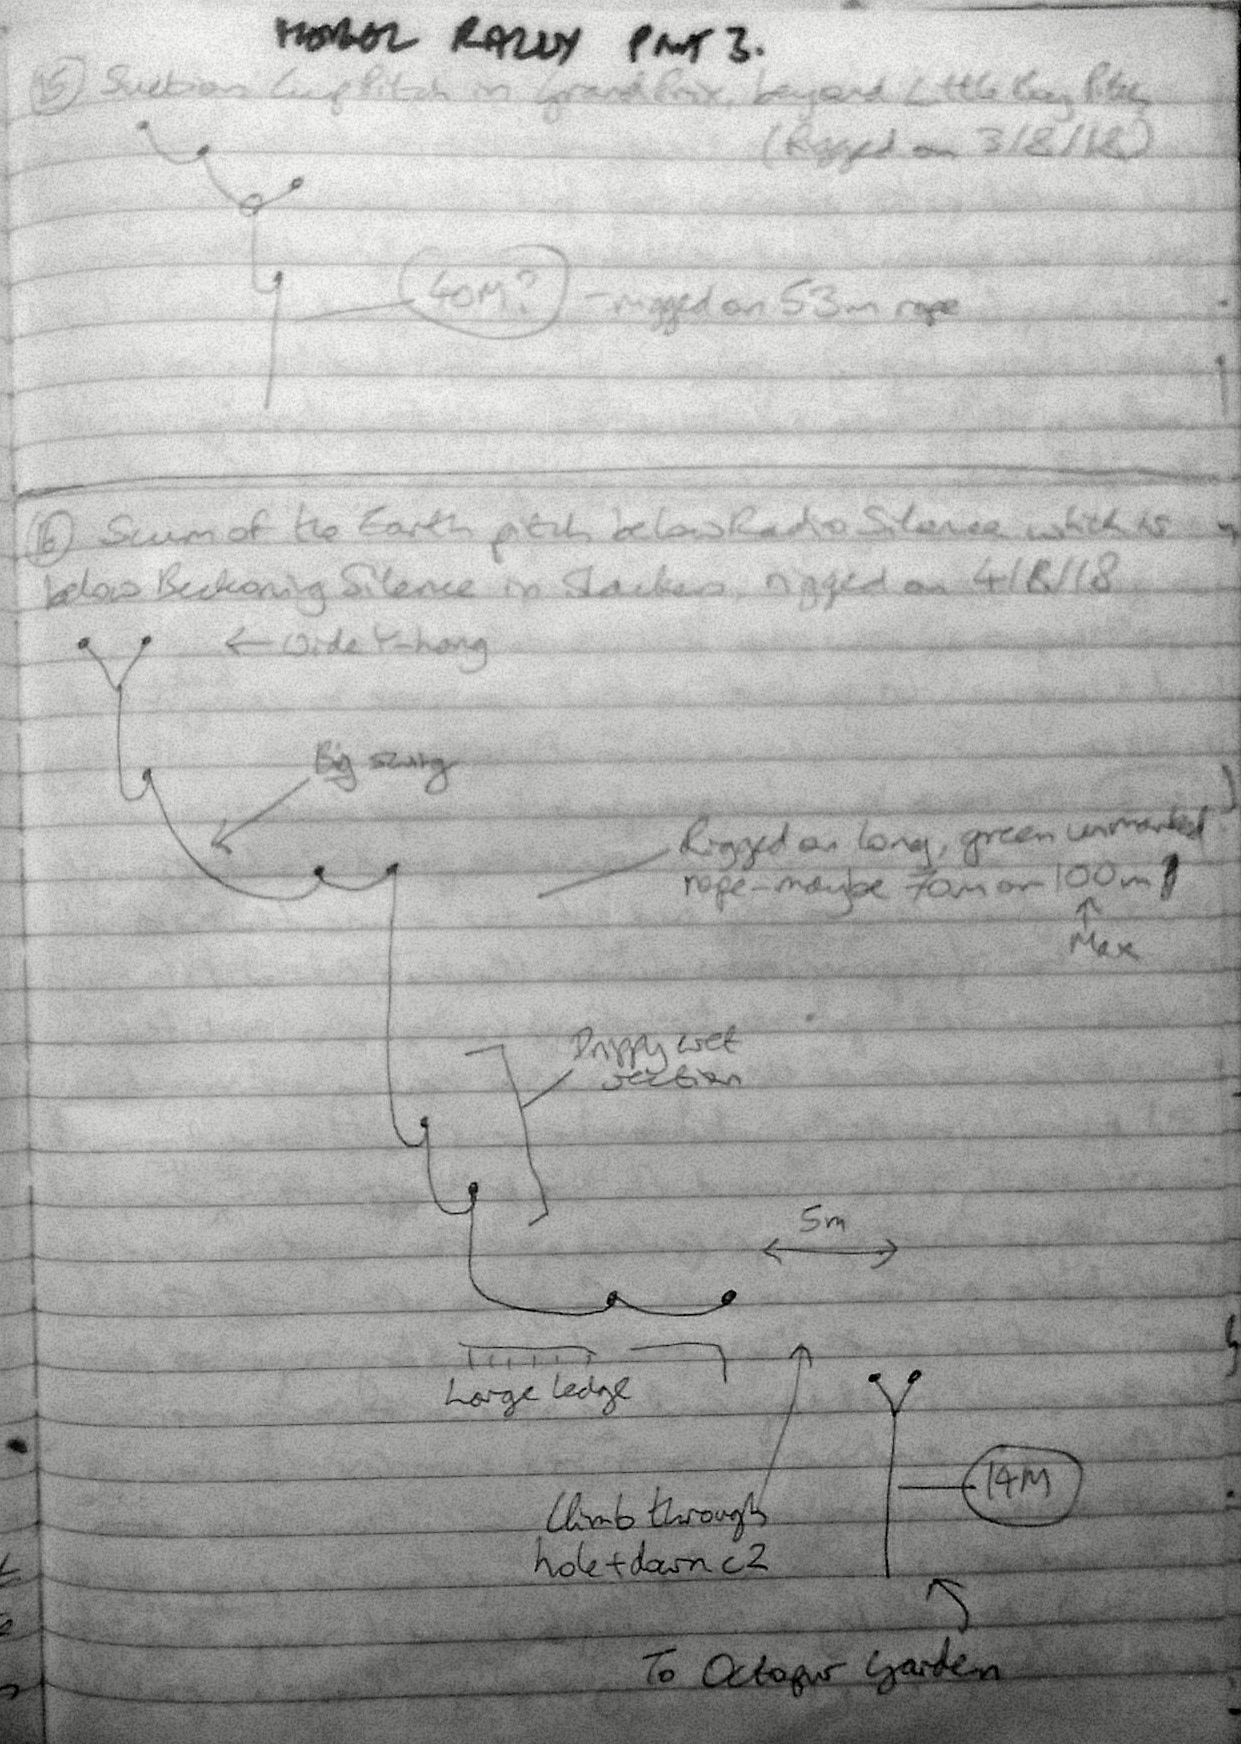 RALLY PART 3.
15 Suction Cup Pitch in Grand Prix, beyond Little Boy Pitch
(Rigged on 3/8/18)
40M? - rigged on 53m rope
16 Scum of the Earth pitch below Radio Silence which is
below Beckoning Silence in Slackers, rigged on 4/8/18
← Wide Y-hang
Big swing
Rigged on long, green unmarked
rope - maybe 70m or 100m
↑
Max
Drippy wet
section
5m
Large ledge
14M
Climb through
hole + down c2
To Octopus Garden